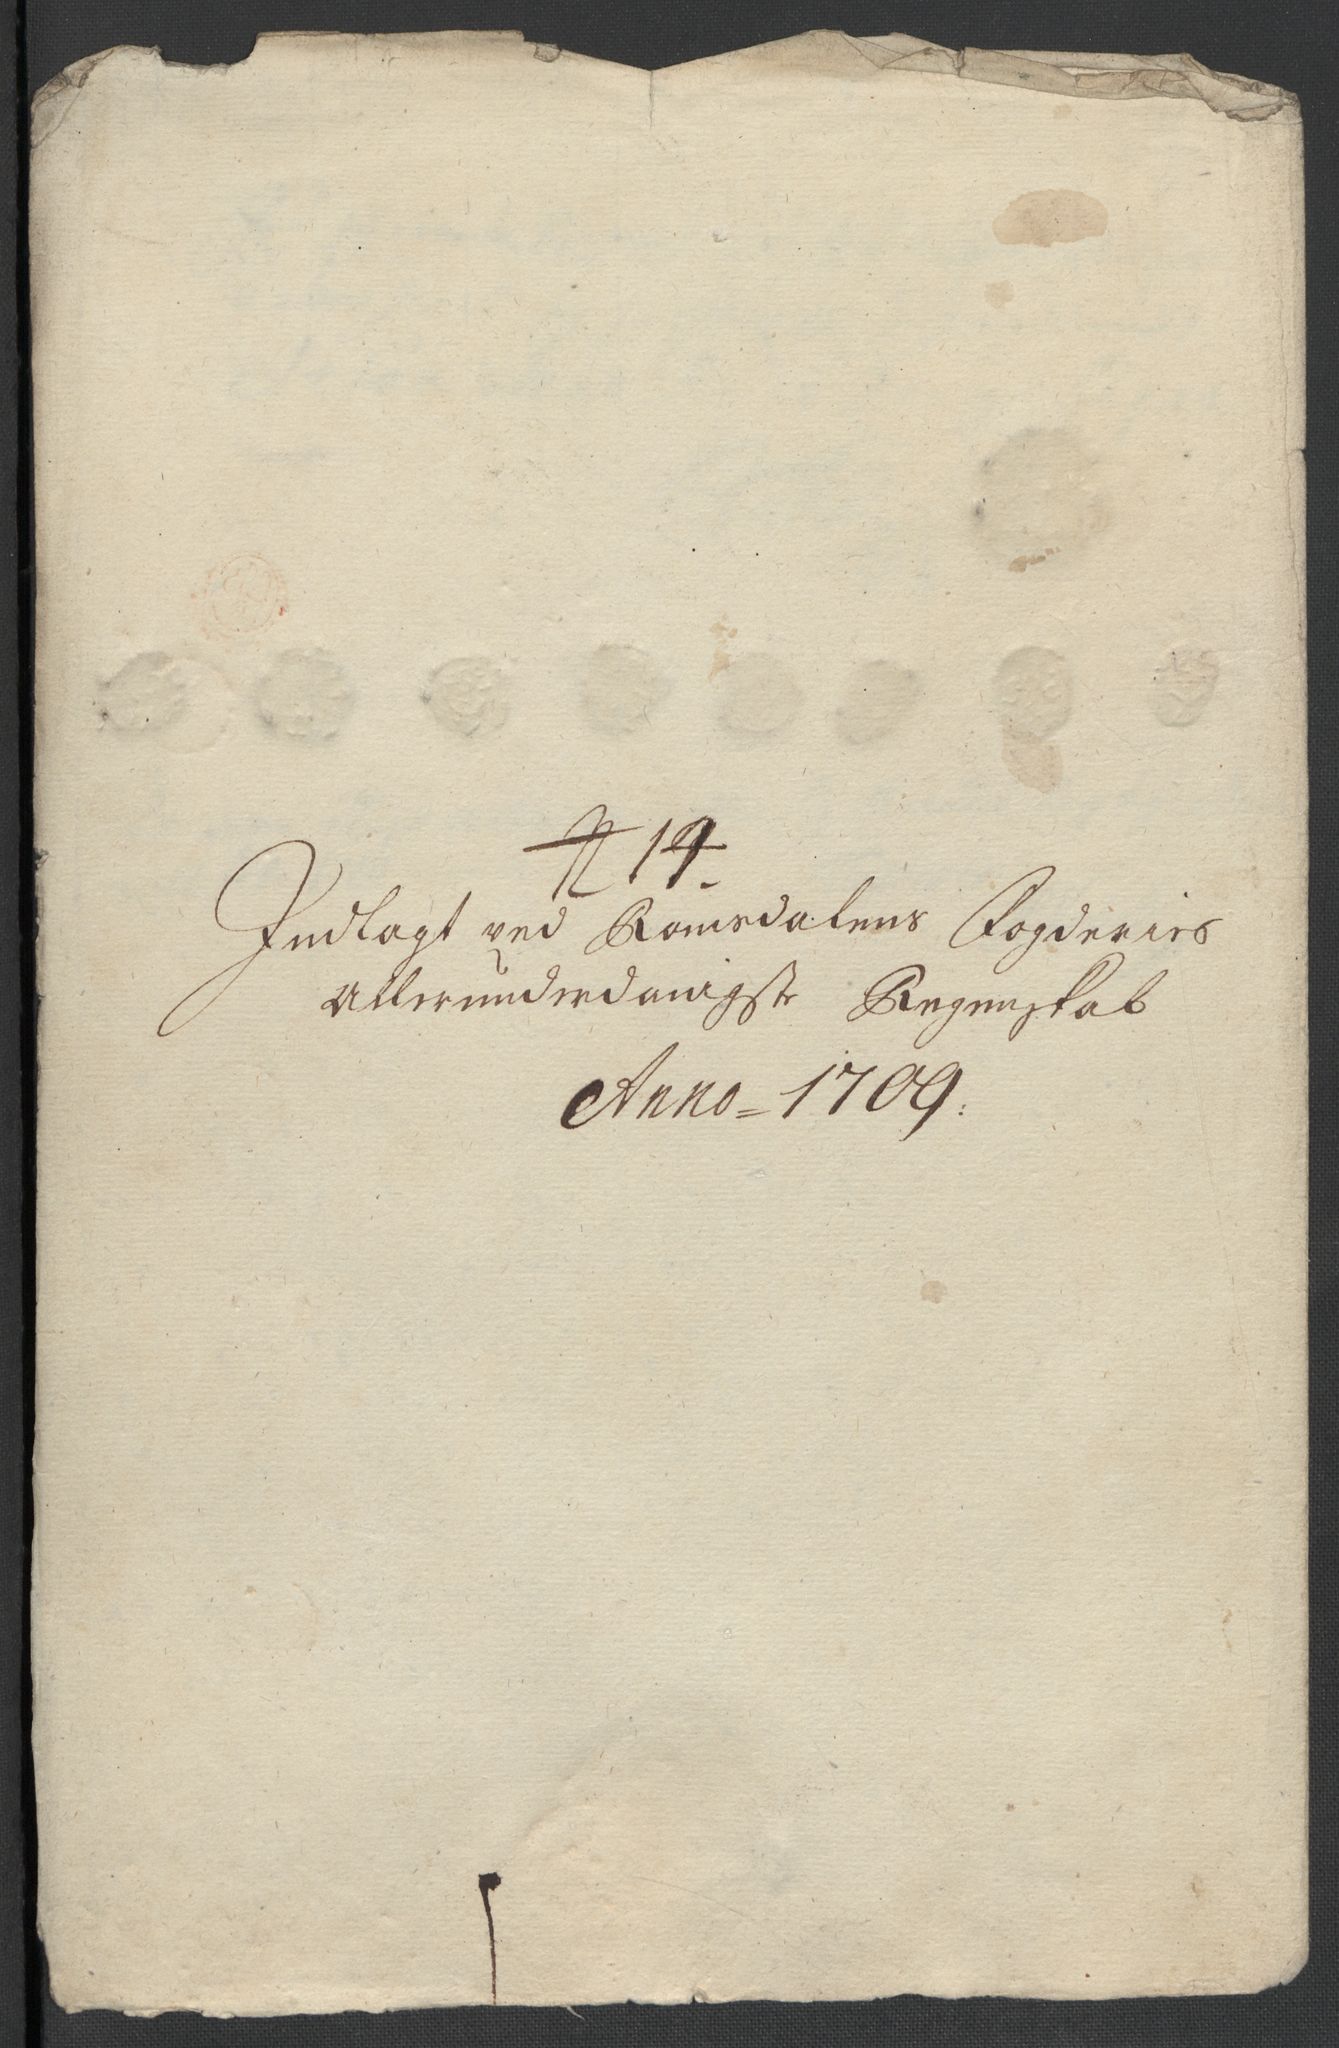 N 19
Indlagt ved Romsdalens Fogderies
Allerunderdanigste Regenskab
Anno = 1709: